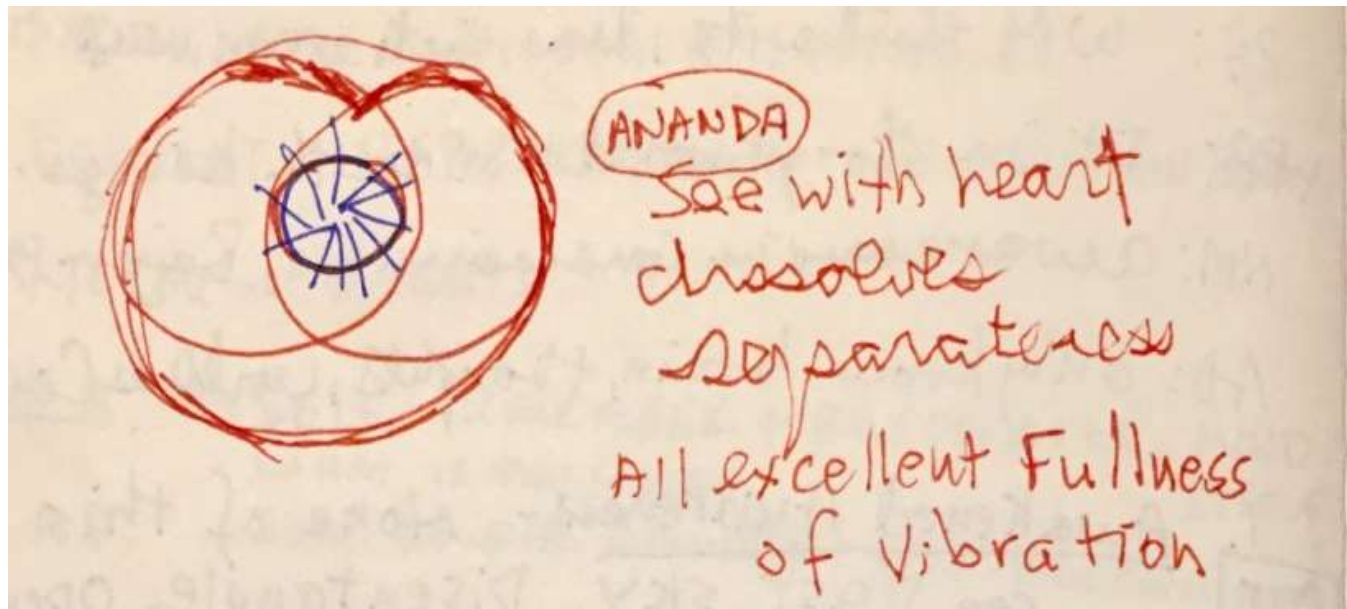 ANANDA
See with heart
dissolves
separateness
All excellent Fullness
of Vibration